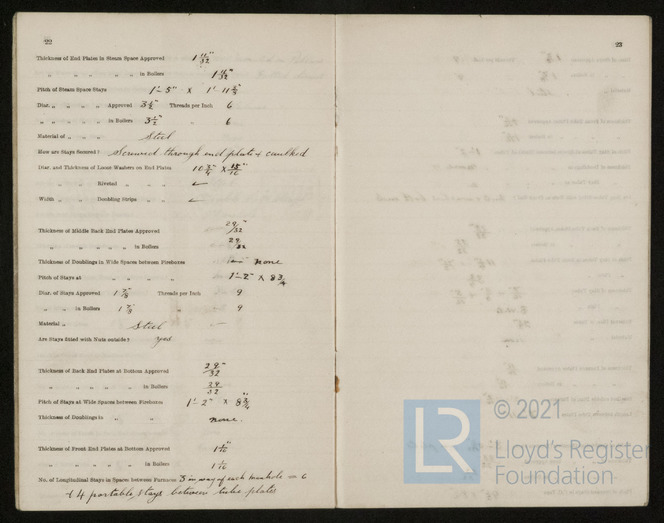 22
Thickness of End Plates in Steam Space Approved 1 11/32"
" " " " " in Boilers 1 11/32"
Pitch of Steam Space Stays 1'-5" x 1'-11 5/8"
Diar. " " " " Approved 3 1/2" Threads per Inch 6
" " " " " in Boilers 3 1/2" " 6
Material of " " " Steel
How are Stays Secured? Screwed through end plates & caulked
Diar. and Thickness of Loose Washers on End Plates 10 3/4" x 15/16"
" " Riveted " " "
Width " " Doubling Strips " "
Thickness of Middle Back End Plates Approved 29/32"
" " " " " in Boilers 29/32"
Thickness of Doublings in Wide Spaces between Fireboxes none
Pitch of Stays at " " " " 1'-2" x 8 3/4"
Diar. of Stays Approved 1 7/8" Threads per Inch 9
" " in Boilers 1 7/8" " 9
Material " Steel
Are Stays fitted with Nuts outside? yes
Thickness of Back End Plates at Bottom Approved 29/32"
" " " " " in Boilers 29/32
Pitch of Stays at Wide Spaces between Fireboxes 1'-2" x 8 3/4"
Thickness of Doublings in " " none.
Thickness of Front End Plates at Bottom Approved
" " " " " in Boilers
No. of Longitudinal Stays in Spaces between Furnaces 3 in way of each manhole = 6
& 4 portable stays between tube plates
23
© 2021
LR
Lloyd's Register
Foundation